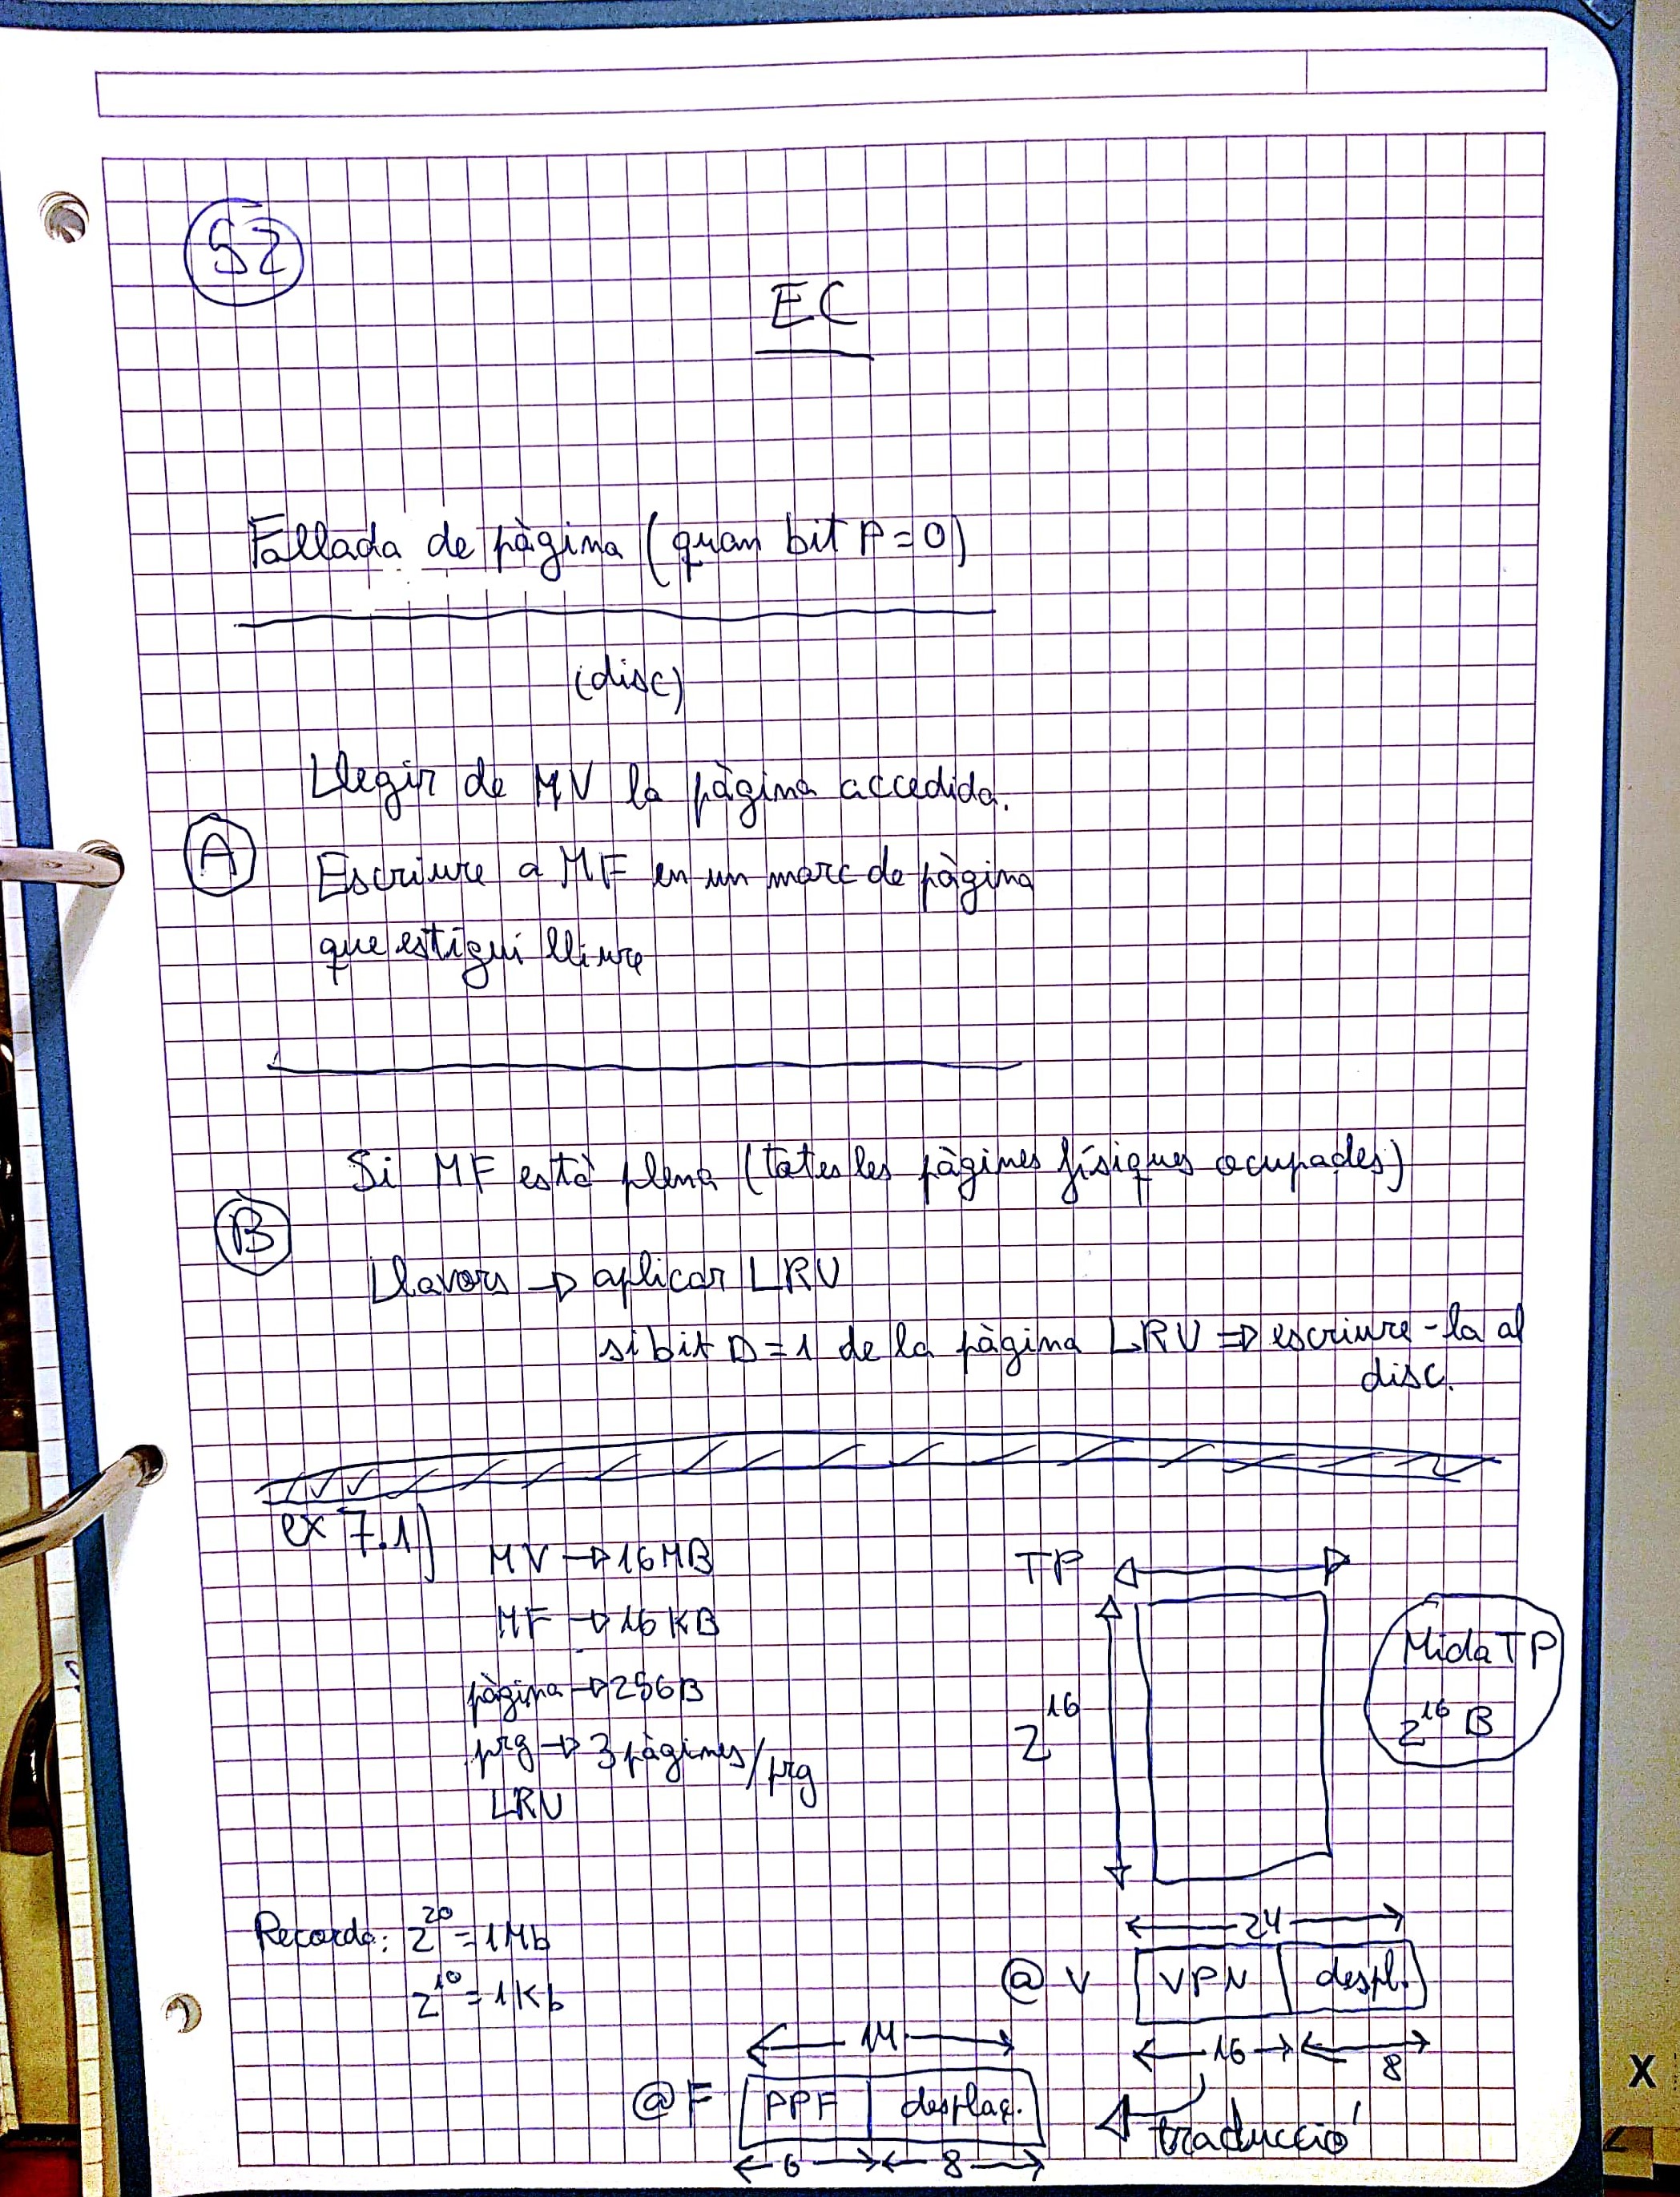 52
EC
Fallada de pàgina (quan bit P=0)
(disc)
Llegir de MV la pàgina accedida.
A
Escriure a MF en un marc de pàgina
que estigui lliure
Si MF està plena (totes les pàgines físiques ocupades)
B
Llavors → aplicar LRU
si bit D=1 de la pàgina LRU ⇒ escriure-la al
disc.
ex 7.1)
MV → 16MB
MF → 16KB
pàgina → 256B
prg → 3 pàgines/prg
LRU
TP
2^16
Mida TP
2^16 B
Recorda: 2^20 = 1Mb
2^10 = 1Kb
24
@V VPN despl.
16 8
traducció
14
@F PPF desplaç.
6 8
X